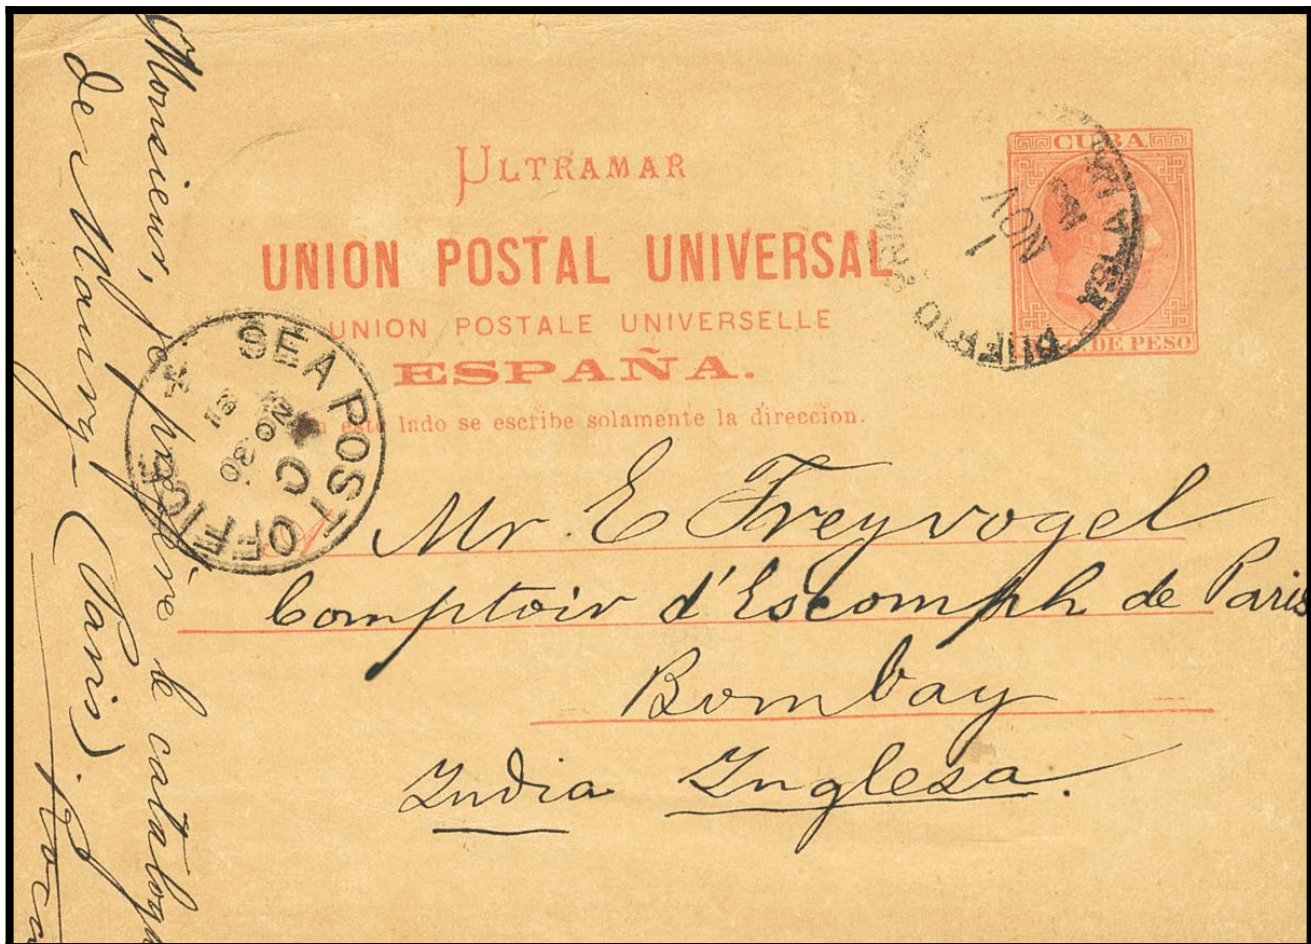 CUBA
ULTRAMAR
UNION POSTAL UNIVERSAL
UNION POSTALE UNIVERSELLE
ESPAÑA.
este lado se escribe solamente la direccion.
C. DE PESO
NOV
1
SEA POST OFFICE
C
NO 30
91
A
Mr. E Freyvogel
Comptoir d'Escompte de Paris
Bombay
India Inglesa.
Monsieur, je préfère le catalogue
de Maury (Paris).